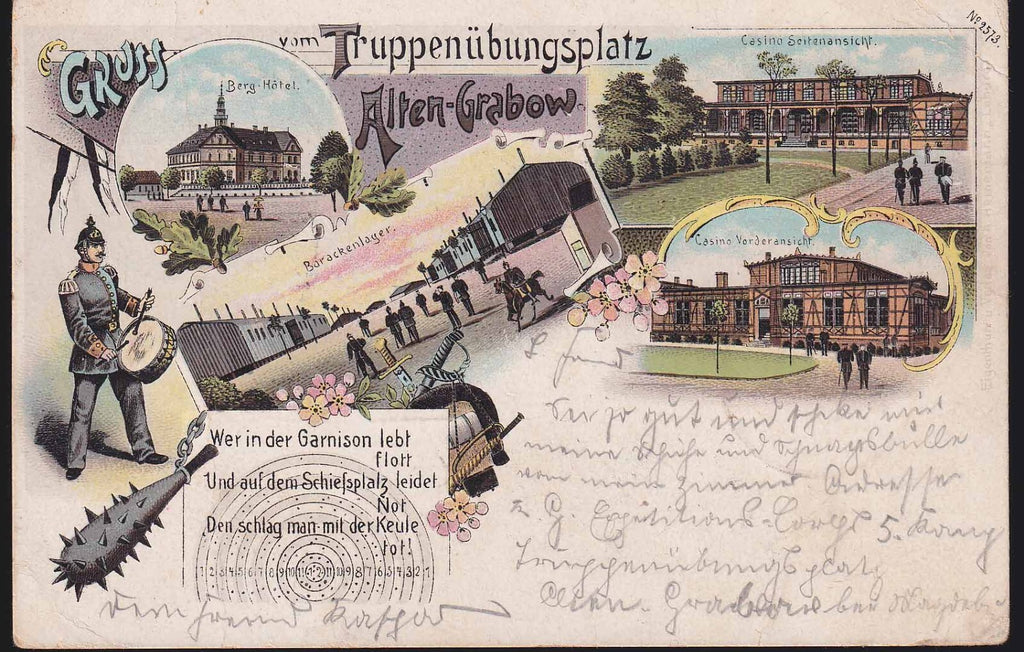 No 2513.
Gruss
vom Truppenübungsplatz
Alten-Grabow.
Berg-Hôtel.
Casino Seitenansicht.
Barackenlager.
Casino Vorderansicht.
Wer in der Garnison lebt
flott
Und auf dem Schiefsplatz leidet
Not
Den schlag man mit der Keule
tot!
1 2 3 4 5 6 7 8 9 10 11 12 11 10 9 8 7 6 5 4 3 2 1
Sei so gut und schike mir
meine Schuhe und
von mein Zimmer Adresse
Expeditions-Corps 5. Komp
Truppenübungsplatz
Alten-Grabow bei Magdeb
Dein Freund Kaspar